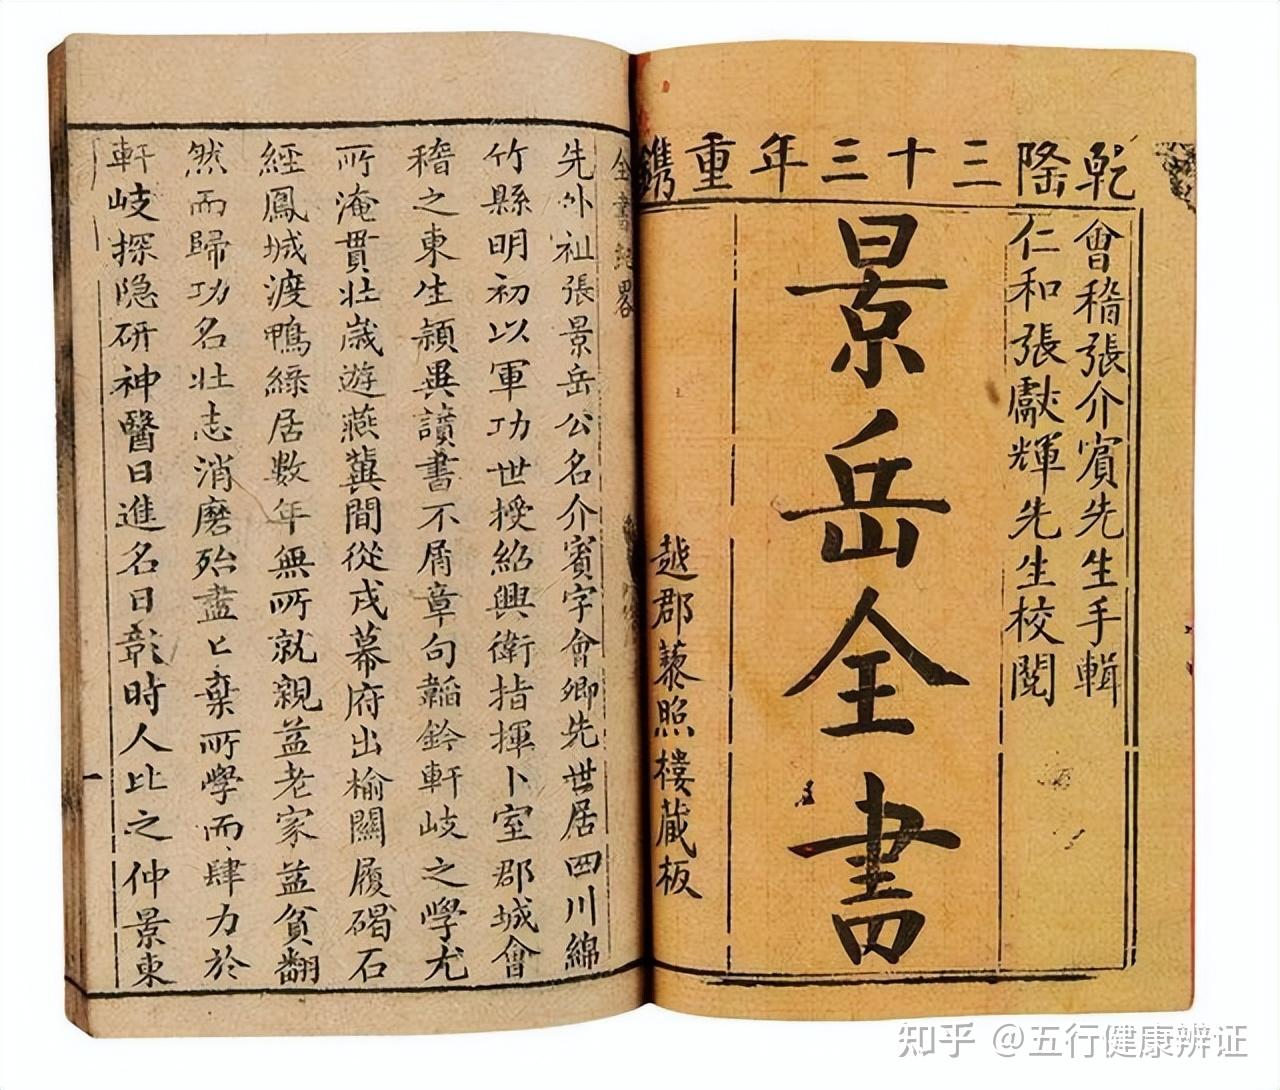 乾隆三十三年重鐫
會稽張介賓先生手輯
仁和張獻輝先生校閱
景岳全書
越郡藜照樓藏板
全書紀畧
先外祖張景岳公名介賓字會卿先世居四川綿
竹縣明初以軍功世授紹興衛指揮卜室郡城會
稽之東生穎異讀書不屑章句韜鈐軒岐之學尤
所淹貫壯歲遊燕冀間從戎幕府出榆關履碣石
經鳳城渡鴨綠居數年無所就親益老家益貧翻
然而歸功名壯志消磨殆盡乚棄所學而肆力於
軒岐探隐研神醫日進名日彰時人比之仲景東
一
知乎 @五行健康辨证